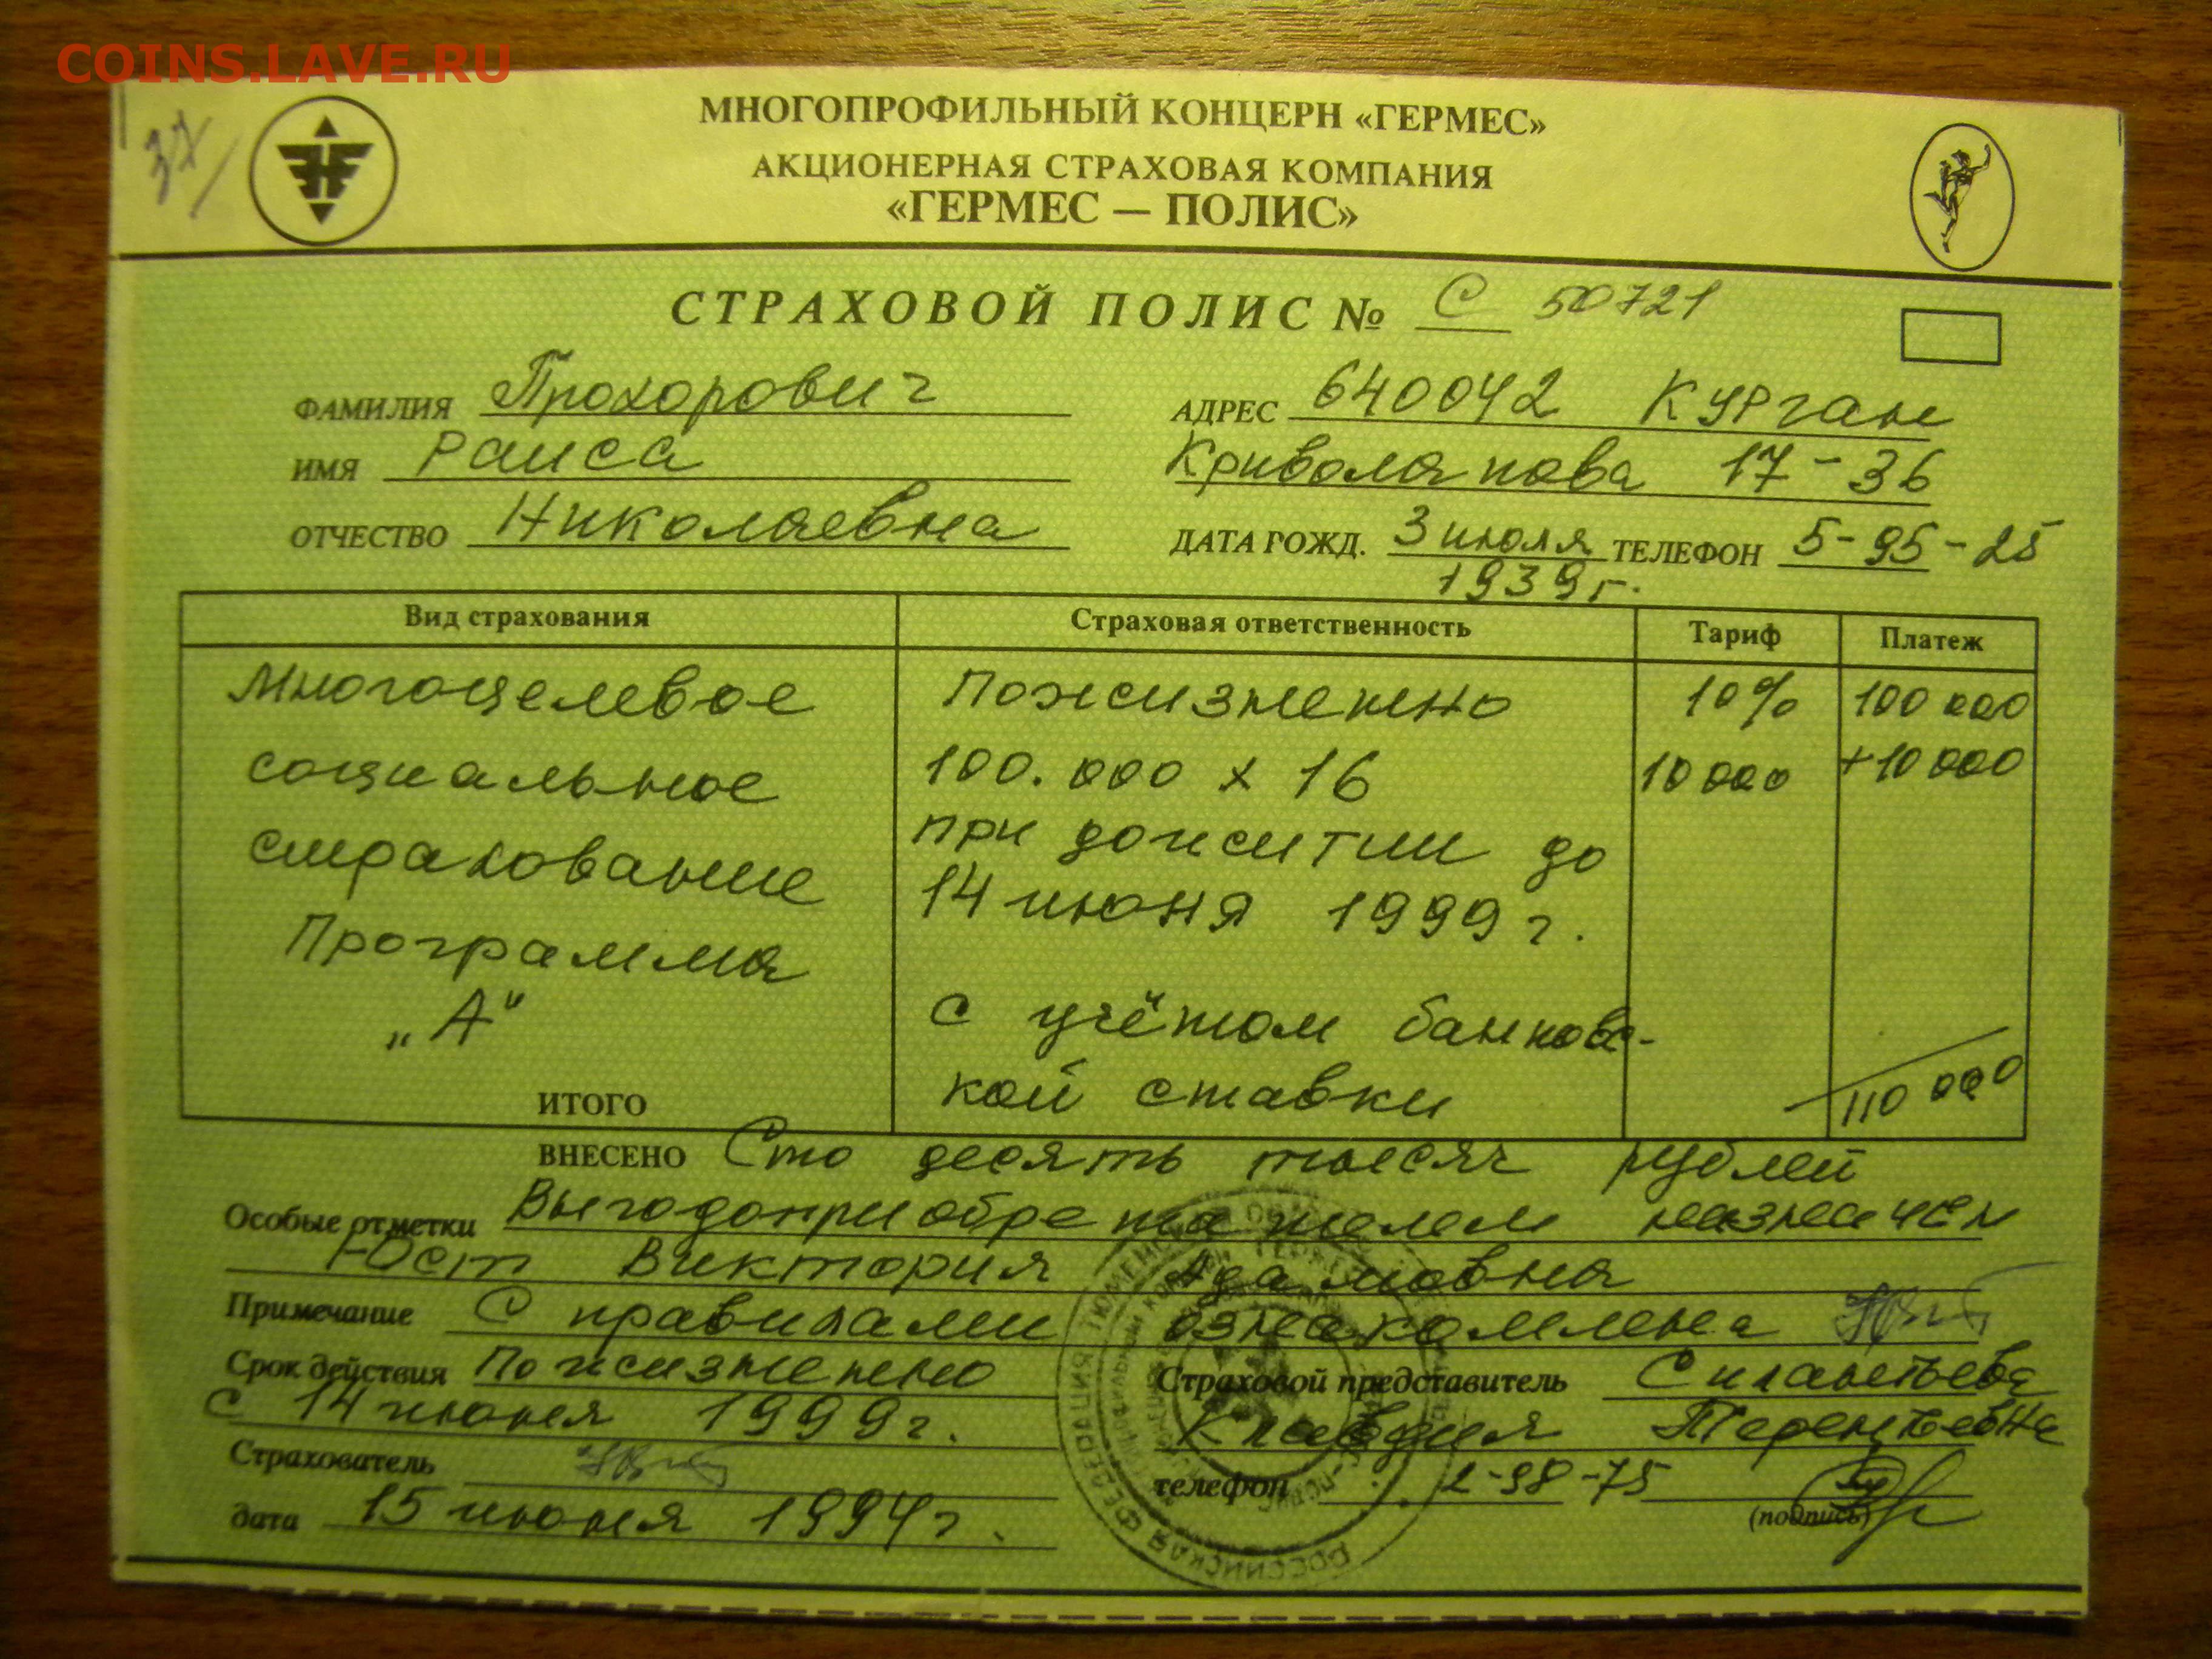 COINS.LAVE.RU
37
МНОГОПРОФИЛЬНЫЙ КОНЦЕРН «ГЕРМЕС»
АКЦИОНЕРНАЯ СТРАХОВАЯ КОМПАНИЯ
«ГЕРМЕС — ПОЛИС»
СТРАХОВОЙ ПОЛИС № С 50721
ФАМИЛИЯ Прохорович
АДРЕС 640042 Курган
ИМЯ Раиса
Кривола пова 17-36
ОТЧЕСТВО Николаевна
ДАТА РОЖД. 3 июля ТЕЛЕФОН 5-95-25
1939г.
Вид страхования Страховая ответственность Тариф Платеж
Многоцелевое пожизненно 10% 100 000
социальное 100.000 х 16 10 000 +10 000
страхование при дожитии до
Программа 14 июня 1999 г.
„А" с учётом банковс-
ИТОГО кой ставки 110 000
ВНЕСЕНО Сто десять тысяч рублей
Особые отметки Выгодоприобретателем назначен
Юст Виктория Адамовна
Примечание С правилами ознакомлена
Срок действия пожизненно
Страховой представитель Силантьева
с 14 июня 1999г.
Клавдия Терентьевна
Страхователь
телефон 2-98-75
дата 15 июня 1994г.
(подпись)
РОССИЙСКАЯ ФЕДЕРАЦИЯ